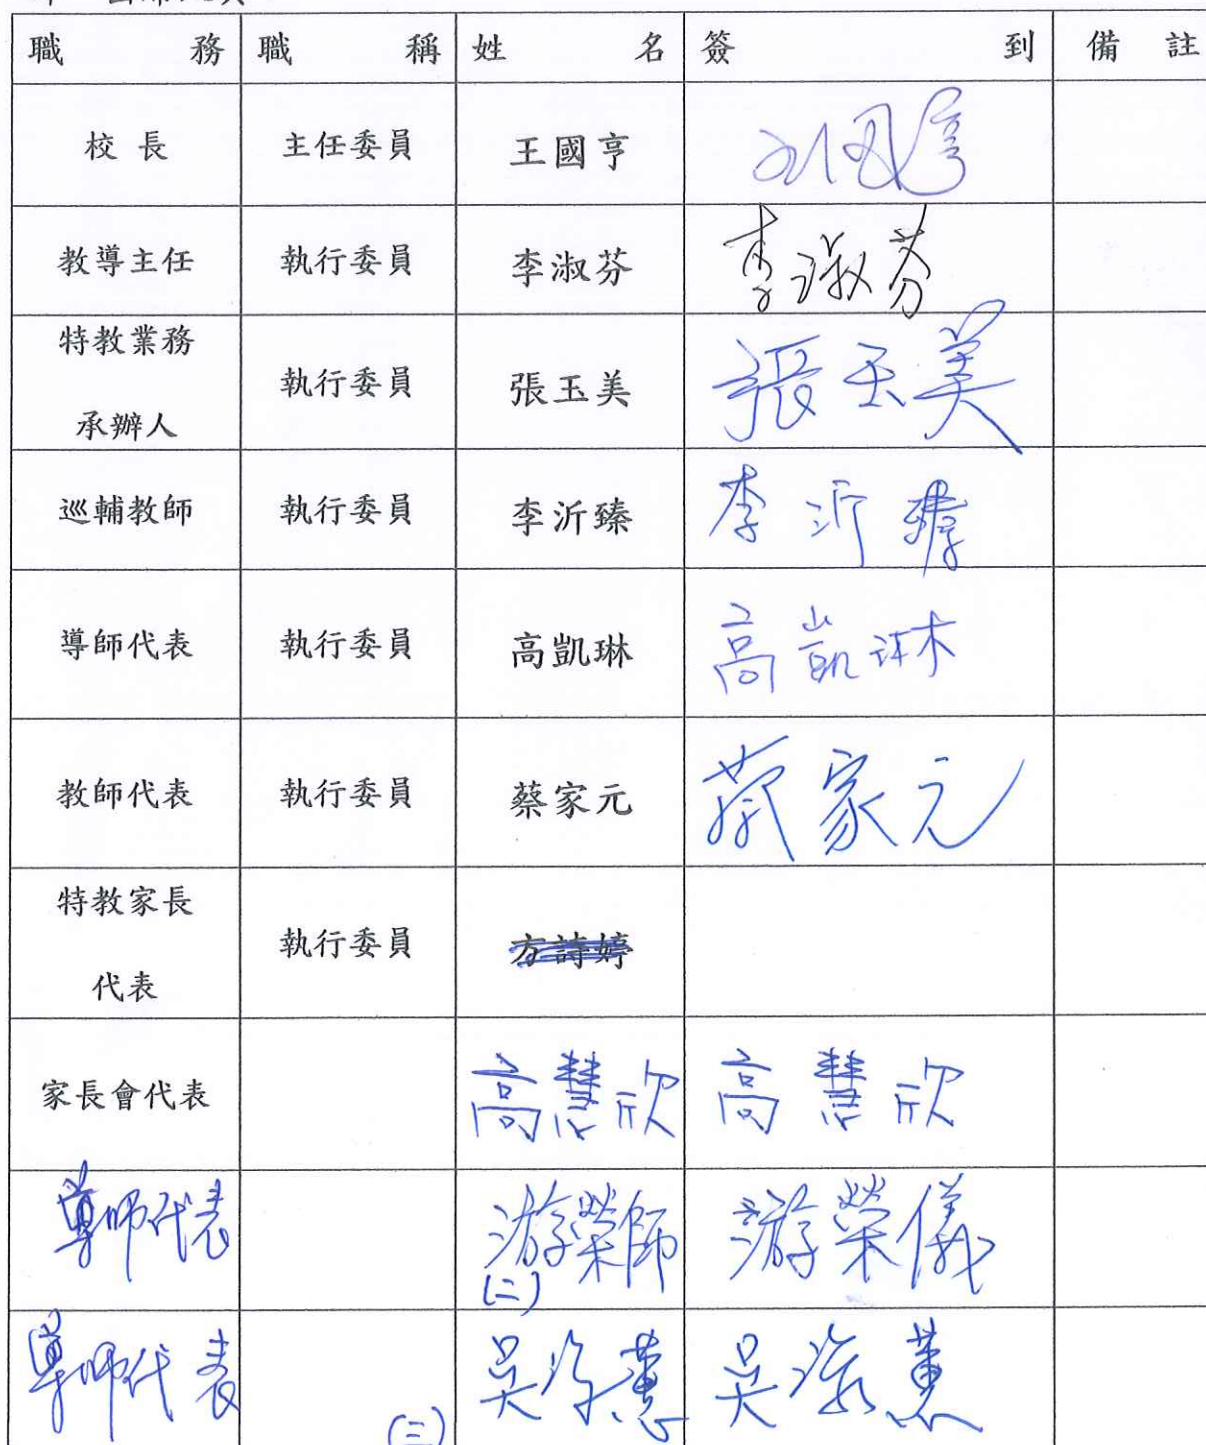 職 務 職 稱 姓 名 簽 到 備 註
校 長 主任委員 王國亨 王國亨
教導主任 執行委員 李淑芬 李淑芬
特教業務
承辦人 執行委員 張玉美 張玉美
巡輔教師 執行委員 李沂臻 李沂臻
導師代表 執行委員 高凱琳 高凱琳
教師代表 執行委員 蔡家元 蔡家元
特教家長
代表 執行委員 方詩婷
家長會代表 高慧欣 高慧欣
導師代表 游榮師 游榮儀
(二)
導師代表 吳
(三)